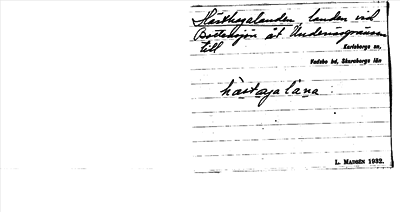 Hästhagalanden, landen vid
Bottensjön åt Undenäsgränsen
till
Karlsborgs sn,
Vadsbo hd, Skaraborgs län
hástagalána
L. MADSÉN 1932.